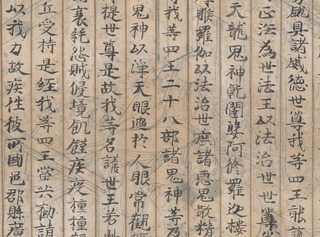 具諸威德世尊我等四王能說
正法為世法王以法治世世尊
天龍鬼神乾闥婆阿脩羅迦樓
睺羅伽以法治世遮諸惡鬼噉精
我等四王二十八部諸鬼神等及
鬼神以淨天眼過於人眼常觀
提世尊是故我等名護世王若此
衰耗怨賊侵境飢饉疾疫種種
丘受持是經我等四王當共勸請
以我力故疾往彼所國邑郡縣廣